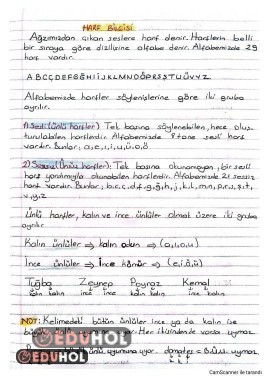 HARF BİLGİSİ
Ağzımızdan çıkan seslere harf denir. Harflerin belli
bir sıraya göre dizilirine alfabe denir. Alfabemizde 29
harf vardır.
A B C Ç D E F G Ğ H I İ J K L M N O Ö P R S Ş T U Ü V Y Z
Alfabemizde harfler söylenişlerine göre iki gruba
ayrılır.
1) Sesli (Ünlü harfler): Tek başına söylenebilen, hece oluş
turulabilen harflerdir. Alfabemizde 8 tane sesli harf
vardır. Bunlar; a, e, ı, i, u, ü, o, ö
2) Sessiz (Ünsüz harfler): Tek başına okunamayan, bir sesli
harf yardımıyla okunabilen harflerdir. Alfabemizde 21 sessiz
harf vardır. Bunlar; b, c, ç, d, f, g, ğ, h, j, k, l, m, n, p, r, s, ş, t,
v, y, z
Ünlü harfler, kalın ve ince ünlüler olmak üzere iki gruba
ayrılır.
Kalın ünlüler ⇒ kalın odun ⇒ (a, ı, o, u)
İnce ünlüler ⇒ İnce kömür ⇒ (e, i, ö, ü)
Tuğba Zeynep Poyraz Kemal
kalın kalın ince ince kalın kalın ince kalın
NOT: Kelimedeki bütün ünlüler ince ya da kalın ise
büyük ünlü uyumuna uyar. Her ikisinden varsa uymaz.
ünlü uyumuna uyar. domates = B.ü.u uymaz
EDUHOL
EDUHOL
CamScanner ile tarandı